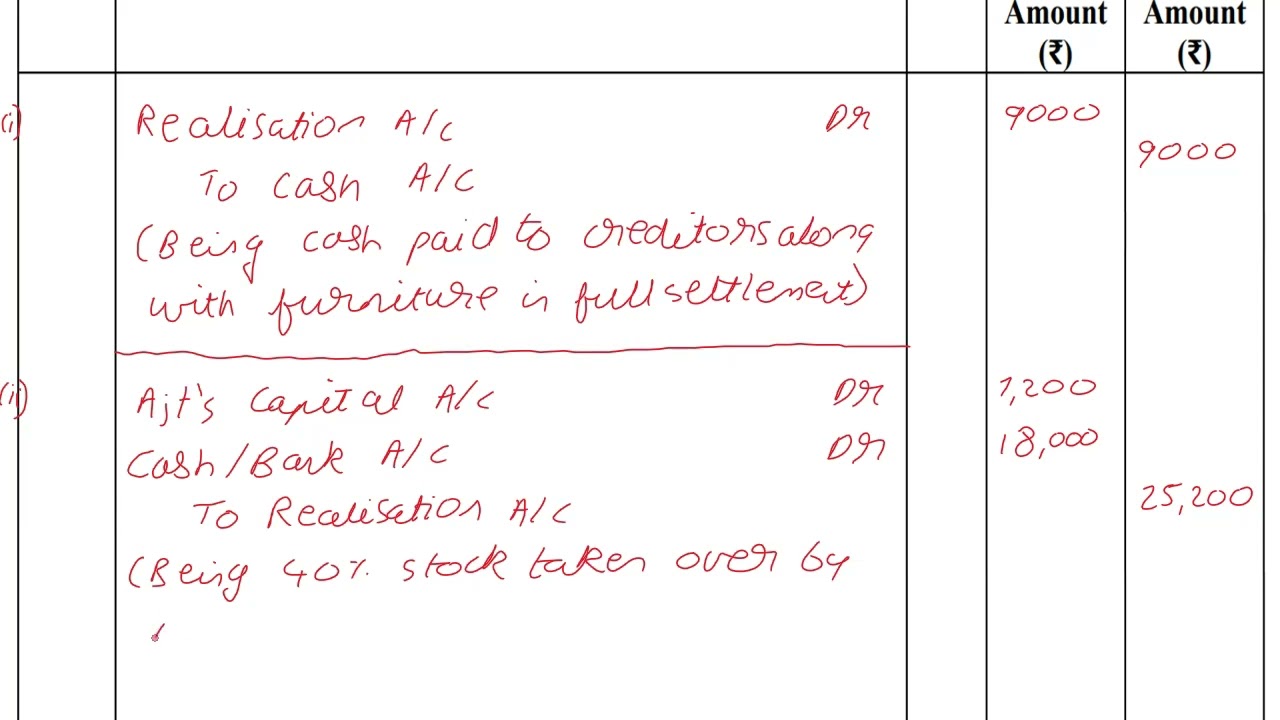 Amount Amount
(₹) (₹)
(i) Realisation A/c Dr 9000
9000
To Cash A/C
(Being cash paid to creditors along
with furniture in full settlement)
(ii) Ajt's Capital A/C Dr 7,200
Cash/Bank A/C Dr 18,000
To Realisation A/C 25,200
(Being 40% stock taken over by